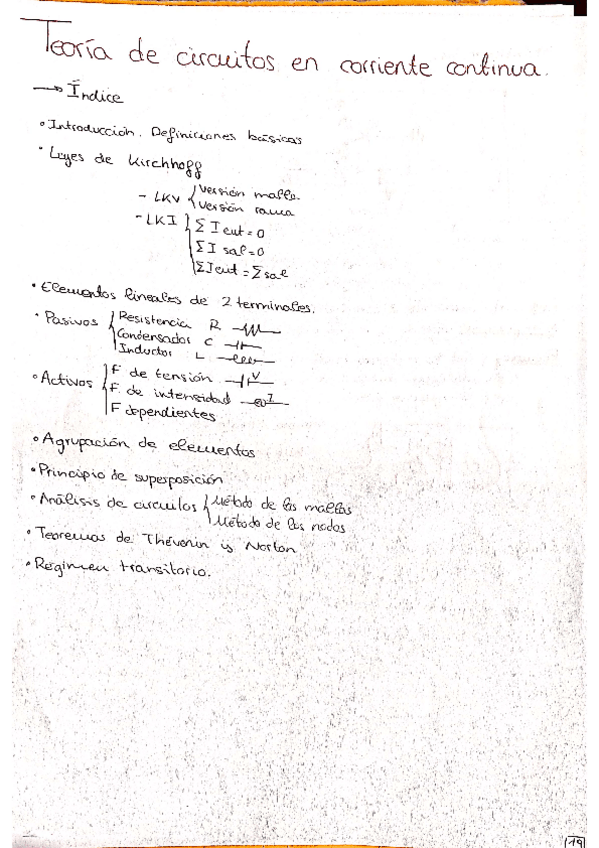 Teoría de circuitos en corriente continua.
→ Índice
• Introducción. Definiciones básicas
• Leyes de Kirchhoff
- LKV { versión malla.
versión rama
- LKI { Σ I ent = 0
Σ I sal = 0
Σ I ent = Σ sal
• Elementos lineales de 2 terminales.
• Pasivos { Resistencia R
Condensador C
Inductor L
• Activos { F de tensión V
F. de intensidad I
F dependientes
• Agrupación de elementos
• Principio de superposición
• Análisis de circuitos { Método de las mallas
Método de los nodos
• Teoremas de Thévenin y Norton
• Régimen transitorio.
19